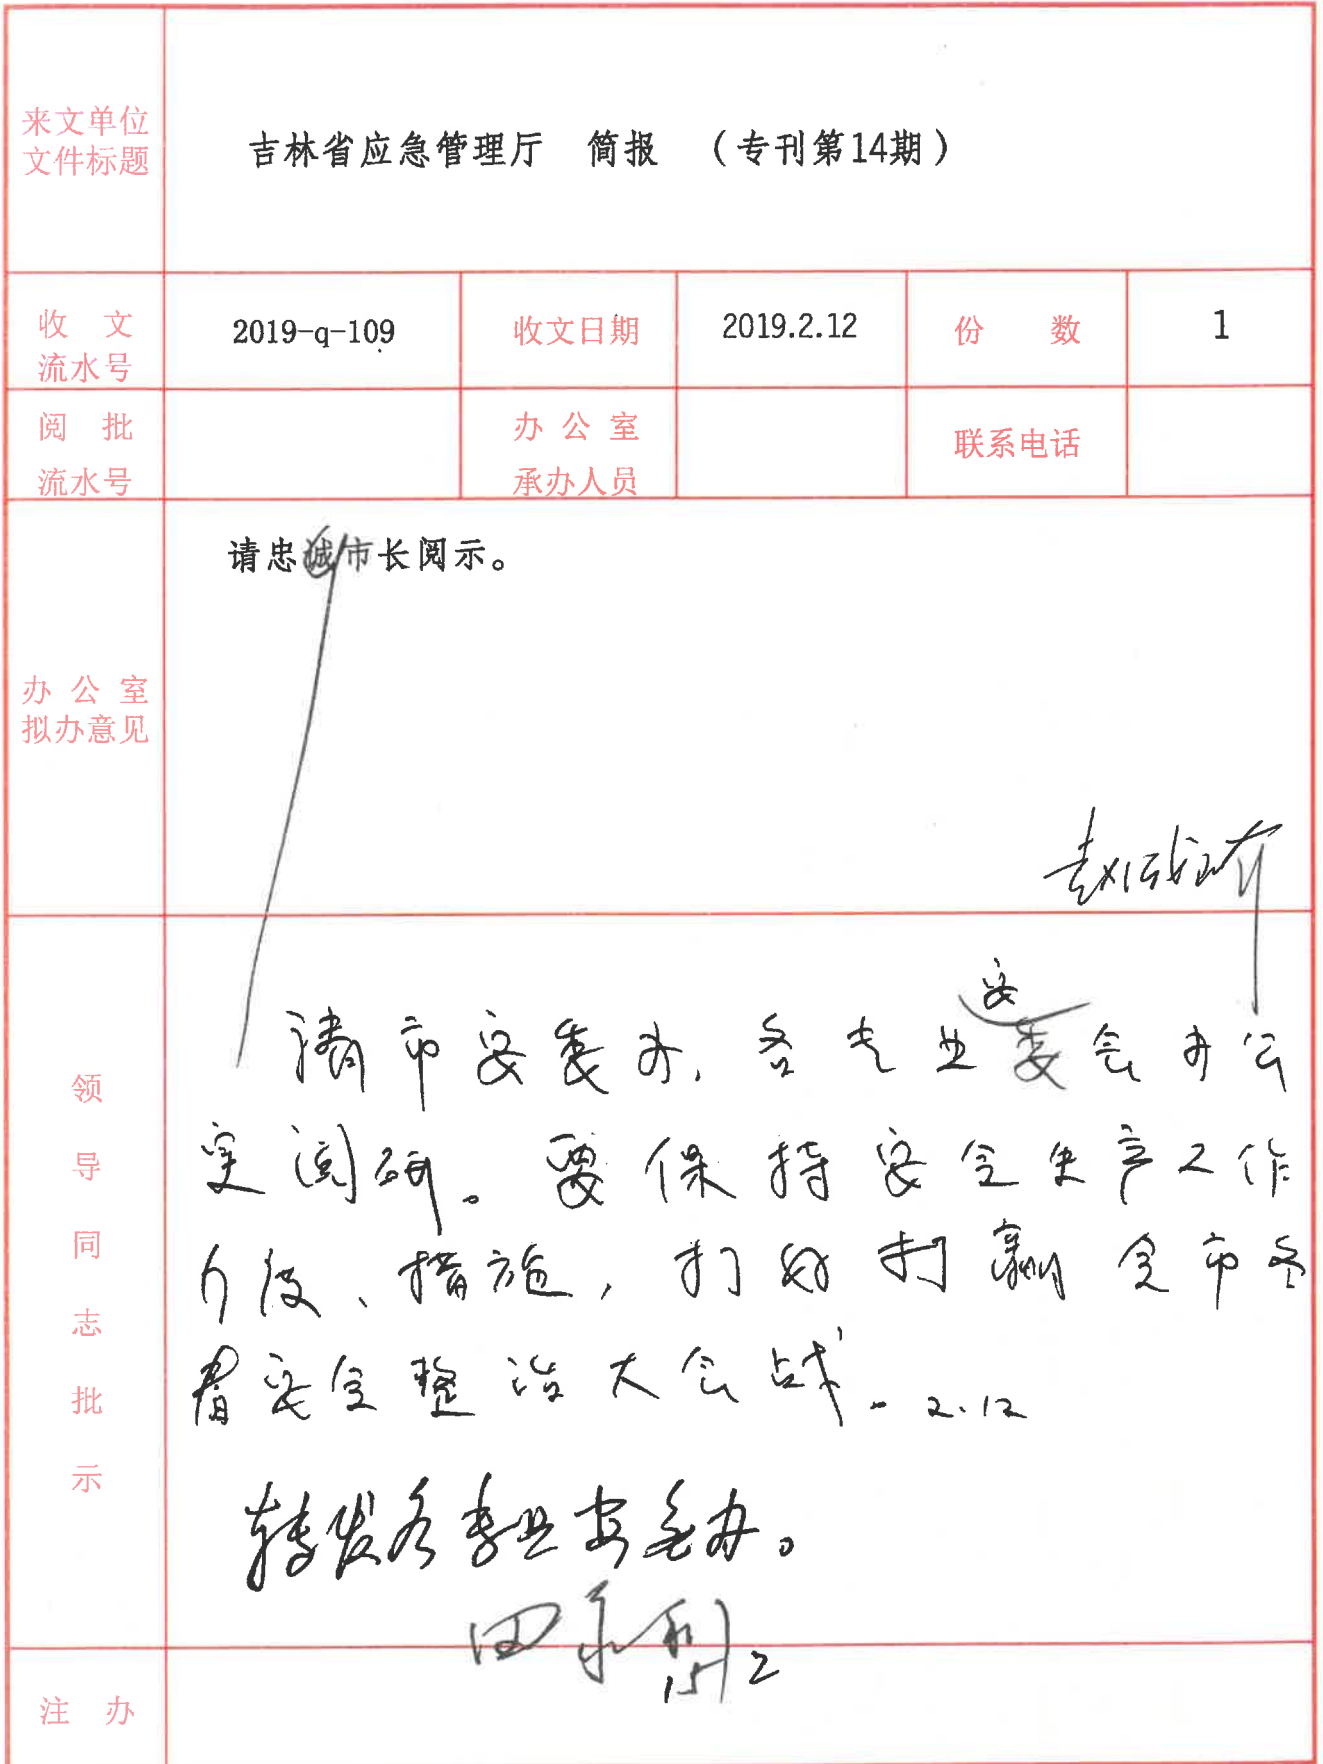 来文单位
文件标题
吉林省应急管理厅 简报 （专刊第14期）
收 文
流水号
2019-q-109
收文日期
2019.2.12
份 数
1
阅 批
流水号
办 公 室
承办人员
联系电话
办 公 室
拟办意见
请忠诚市长阅示。
领导同志批示
请市安委办、各专业安委会办公
室阅研。要保持安全生产工作
力度、措施，打好打赢全市冬
春安全整治大会战。2.12
转发各专业安委办。
田永利
15/2
注 办